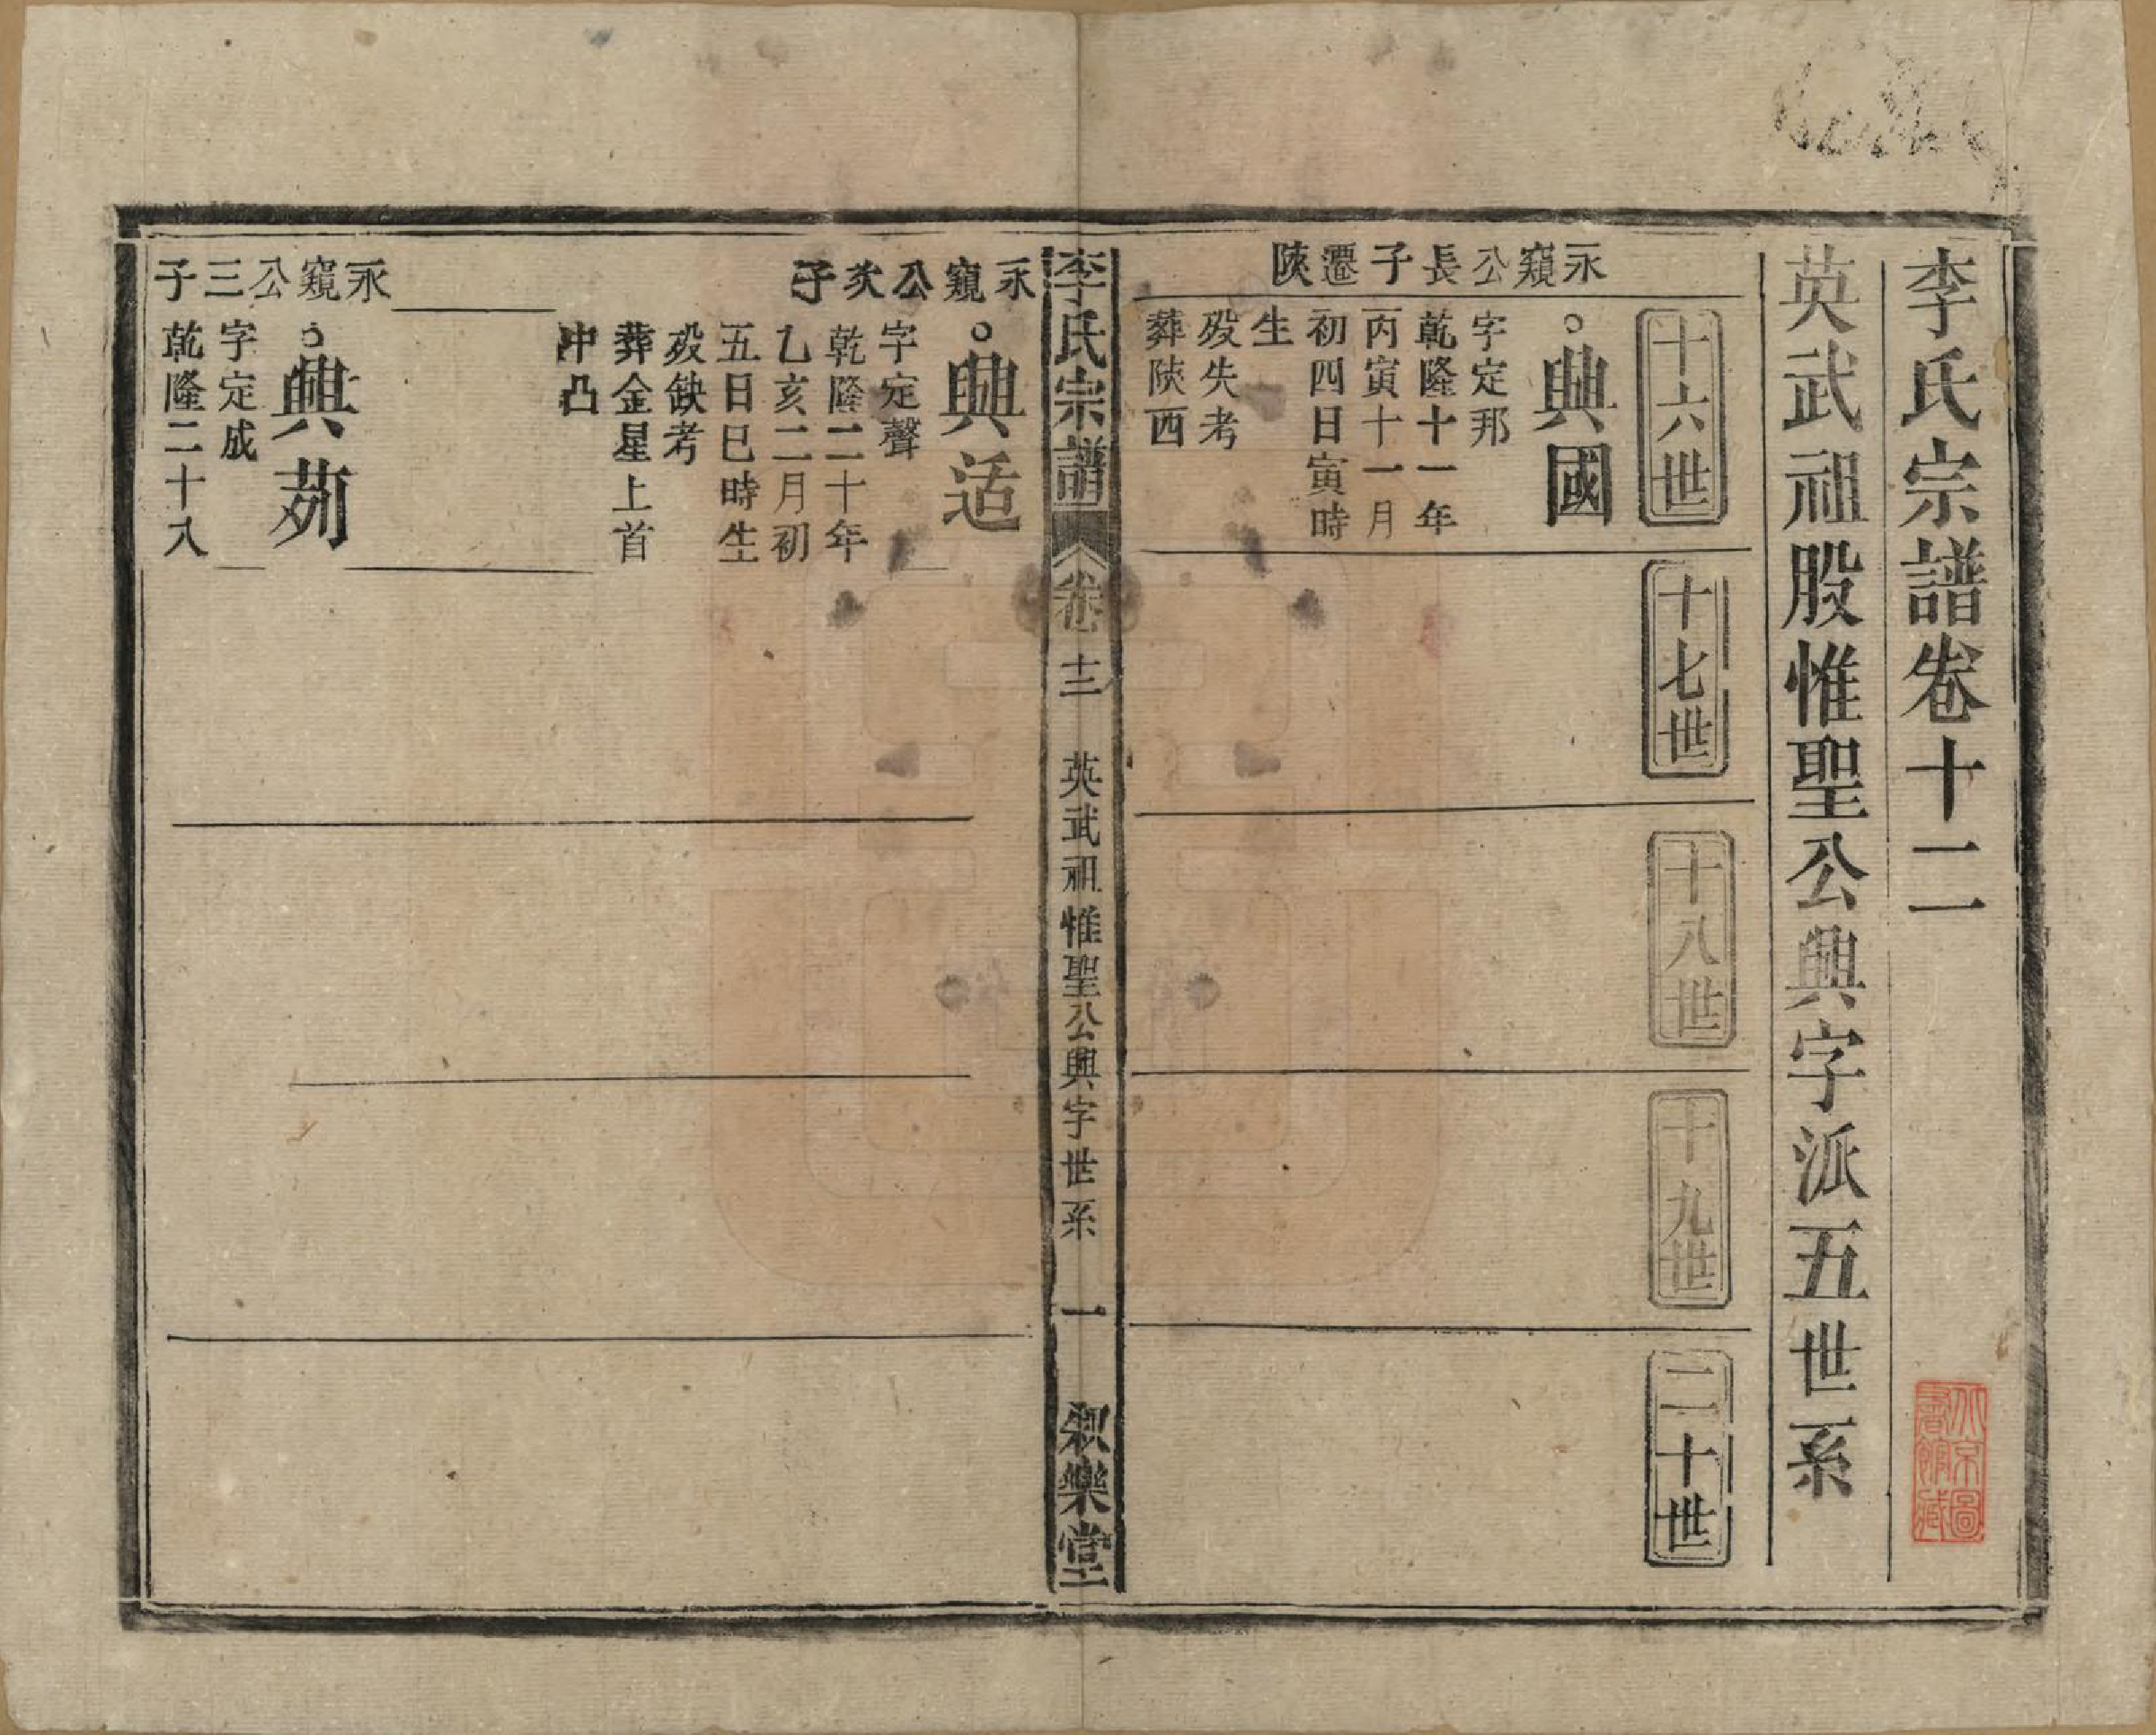 李氏宗譜卷十二
北京圖書館藏
英武祖股惟聖公興字派五世系
十六世
十七世
十八世
十九世
二十世
永窺公長子遷陝
興國
字定邦
乾隆十一年
丙寅十一月
初四日寅時
生
歿失考
葬陝西
李氏宗譜
卷十二
英武祖惟聖公興字世系
一
釈樂堂
永窺公次子
興适
字定聲
乾隆二十年
乙亥二月初
五日巳時生
歿缺考
葬金星上首
中凸
永窺公三子
興茢
字定成
乾隆二十八